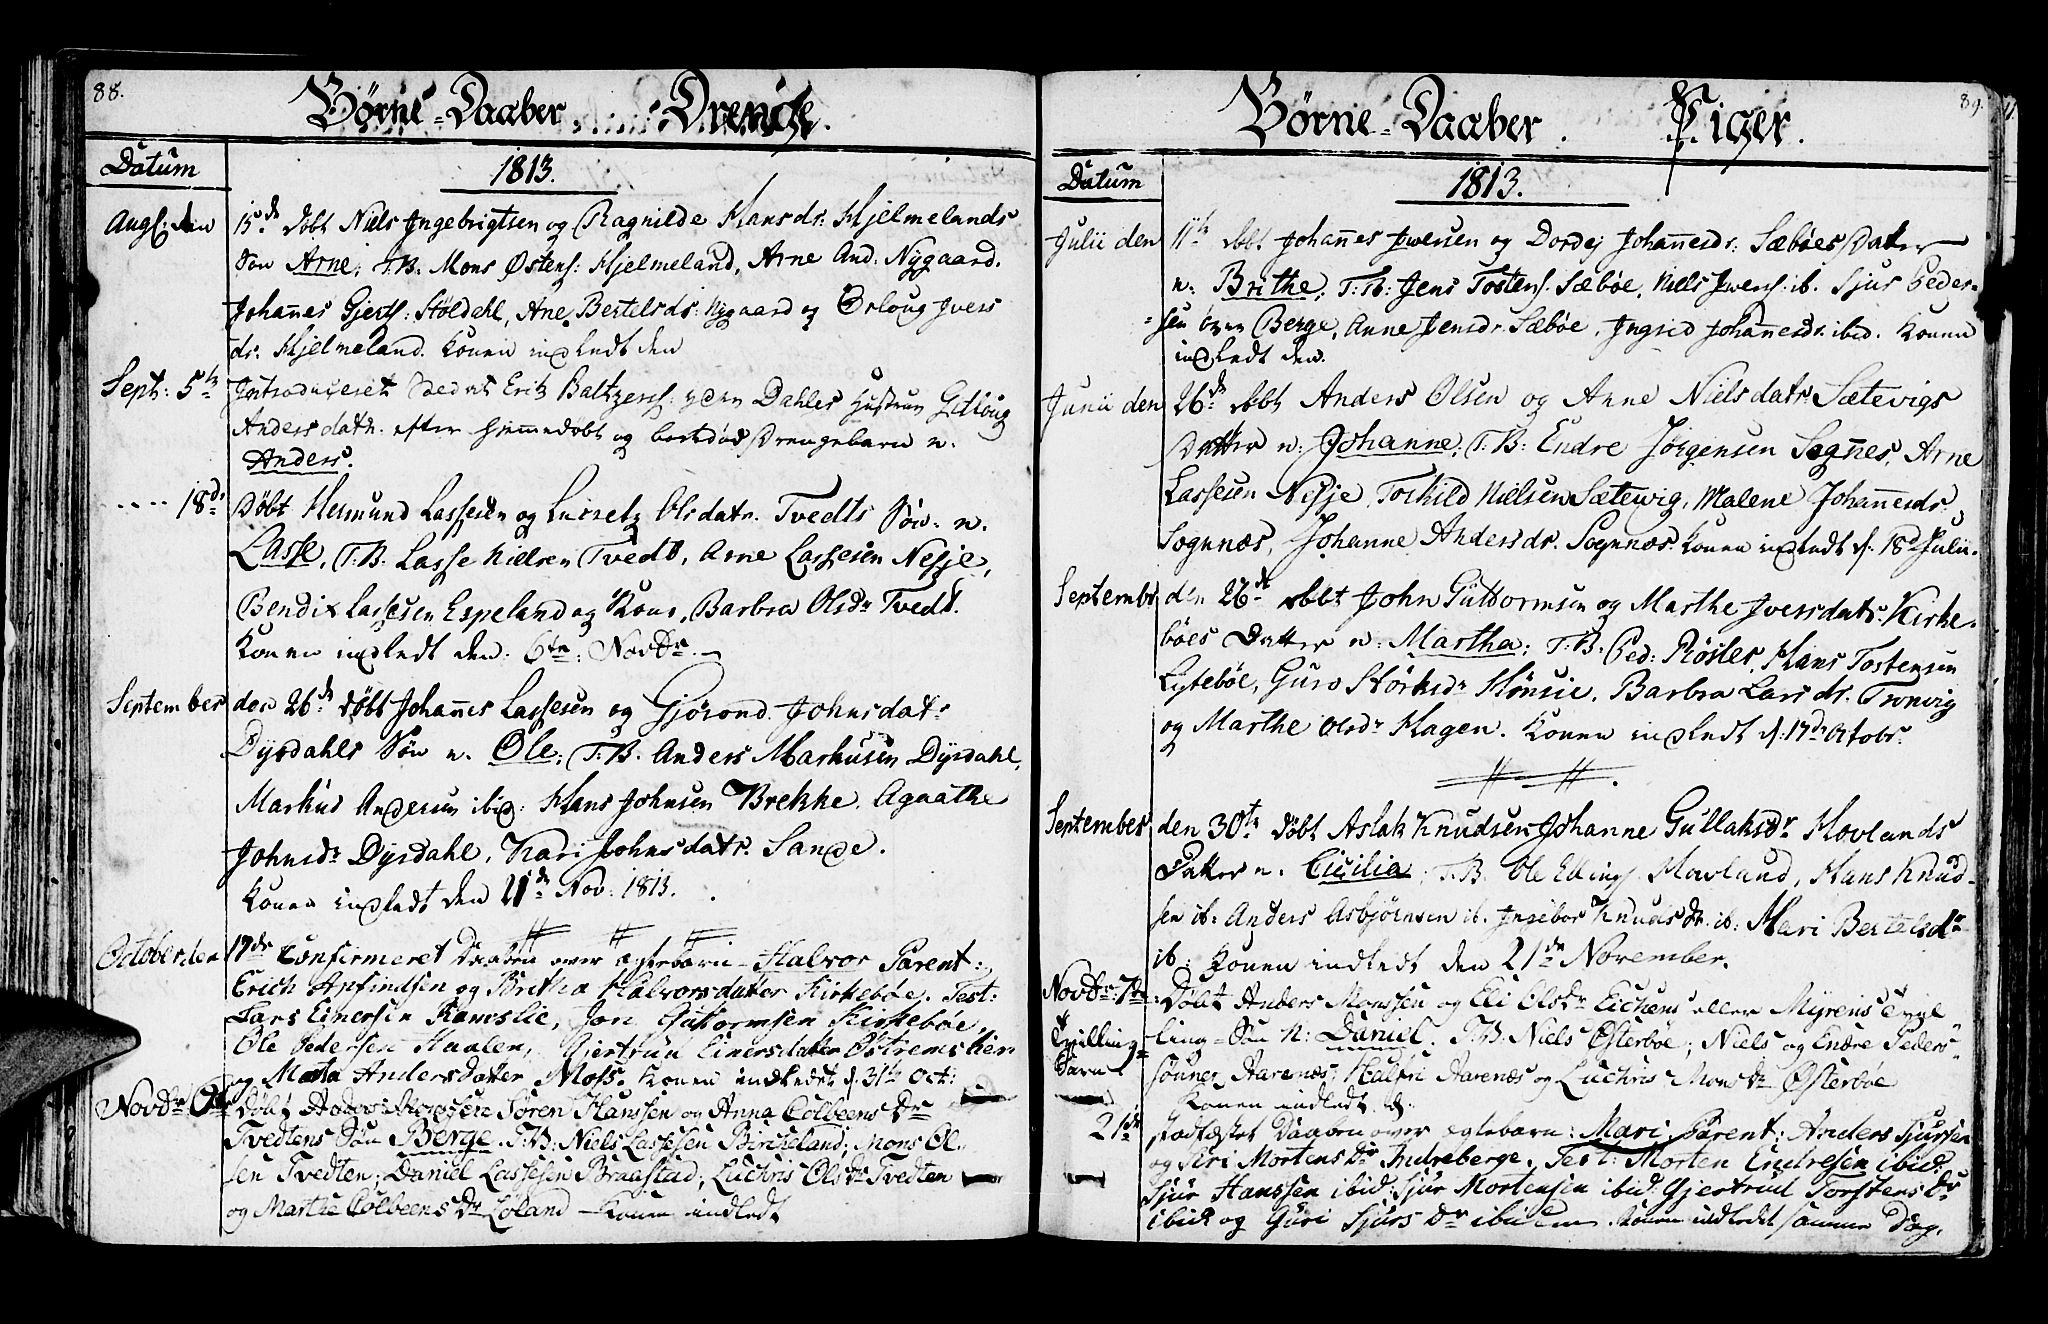 88.
Børne-Daaber. Drenge.
Datum
1813.
Augs: den 15de døbt Niels Ingebrigtsen og Ragnilde Hansdr: Hjelmelands
Søn Arne; T.B. Mons Østens: Hjelmeland, Arne And: Nygaard.
Johannes Gjerts: Støldahl, Ane Bertelsdr: Nygaard og Orloug Ivers
dr: Hjelmeland. Konen indledt den
Sept: 5te Introduceret Erik Baltzers: Dahles Hustrue Gitloug
Andersdatr. efter hjemmedøbt og Drengebarn n.
Anders.
.... 18de Døbt Hermund Lassesen og Olsdatr. Tvedts Søn n.
Lasse, T.B. Lasse Nielsen Tvedt, Arne Lassesen Nesje,
Bendix Lassesen Espeland og Kone, Barbra Olsdr Tvedt.
Konen indledt den 6te Novbr.
September den 26de døbt Johannes Lassesen og Gjørond Johnsdatr
Dysdahls Søn n. Ole; T.B. Anders Markusen Dysdahl,
Markus Andersen ibid: Hans Johnsen Brekke. Agaathe
Johnsdr Dysdahl, Kari Johnsdatr. Sande.
Konen indledt den 21de Nov: 1813.
October den 17de Confirmeret Daaben over ægtebarn Halvor Parent:
Erich Anfindsen og Britha Halvorsdatter Kirkebøe. Test:
Lars Einersen Ramslie, Jon Guttormsen Kirkebøe,
Ole Pedersen Haalen, Gjertrud Einersdatter Østremslier
og Marta Andersdatter Moss. Konen indledet d. 31te Oct:
Novbr Døbt Søren Hanssen og Anna Colbeens Dr
Tvedtens Søn Berge. T.B: Niels Lassesen Birkeland; Mons Ol-
sen Tvedten; Daniel Lassesen Braastad, Luchris Olsdr Tvedten
og Marthe Colbeens Dr Løland - Konen indledt
89.
Børne-Daaber. Piger.
Datum
1813.
Julii den 11te døbt Johannes Iversen og Dordej Johannesdr: Sæbøes Datter
n: Brithe; T:B: Jens Tostens. Sæbøe, Niels Ivers: ib. Sjur Peder-
sen Berge, Anne Jensdr Sæbøe, Ingrid Johannesdr. ibid. Konen
indledt den.
Junii den 26de døbt Anders Olsen og Anne Nielsdatr. Sætevigs
Datter n: Johanne; T.B: Endre Jørgensen Sognes, Arne
Lassesen Nesje, Torkild Nielsen Sætevig, Malene Johannesdr.
Sognnæs, Johanne Andersdr. Sognnæs. Konen indledt d: 18de Julii.
Septembr den 26de døbt John Guttormsen og Marthe Iversdatr: Kirke-
bøes Datter n: Martha; T.B. Ped: Røsler, Hans Tostensen
Lytebøe, Guro Størksdr Hønsie, Barbra Larsdr. Tronvig
og Marthe Olsdr Hagen. Konen indledt d: 17de Octobr.
September den 30te døbt Aslak Knudsen Johanne Gullaksdr Hovlands
Datter n. Cicilia; T.B. Ole Ellings. Hovland, Hans Knud-
sen ib. Anders Asbjørnsen ib. Ingebor Knudsdr. ib: Mari Bertelsdr
ib: Konen indledt den 21de November.
Novbr: 7de Døbt Anders Monssen og Eli Olsdr Eichens eller Myrens tvil-
Tvilling-
Barn
ling-Søn N: Daniel. T.B: Niels Østerbøe; Niels og Endre Peders-
sønner Harenæs; Halfri Harenæs og Luchris Monsdr Østerbøe
Konen indledt d.
21de Stadfæstet Daaben over ægtebarn: Mari Parent: Anders Sjursen
og Siri Mortensdr Indreberge. Test: Morten Endresen ibid.
Sjur Hanssen ibid: Sjur Mortensen ibid: Gjertrud Torstensdr
ibid og Guri Sjursdr ibidem. Konen indledet samme Dag.